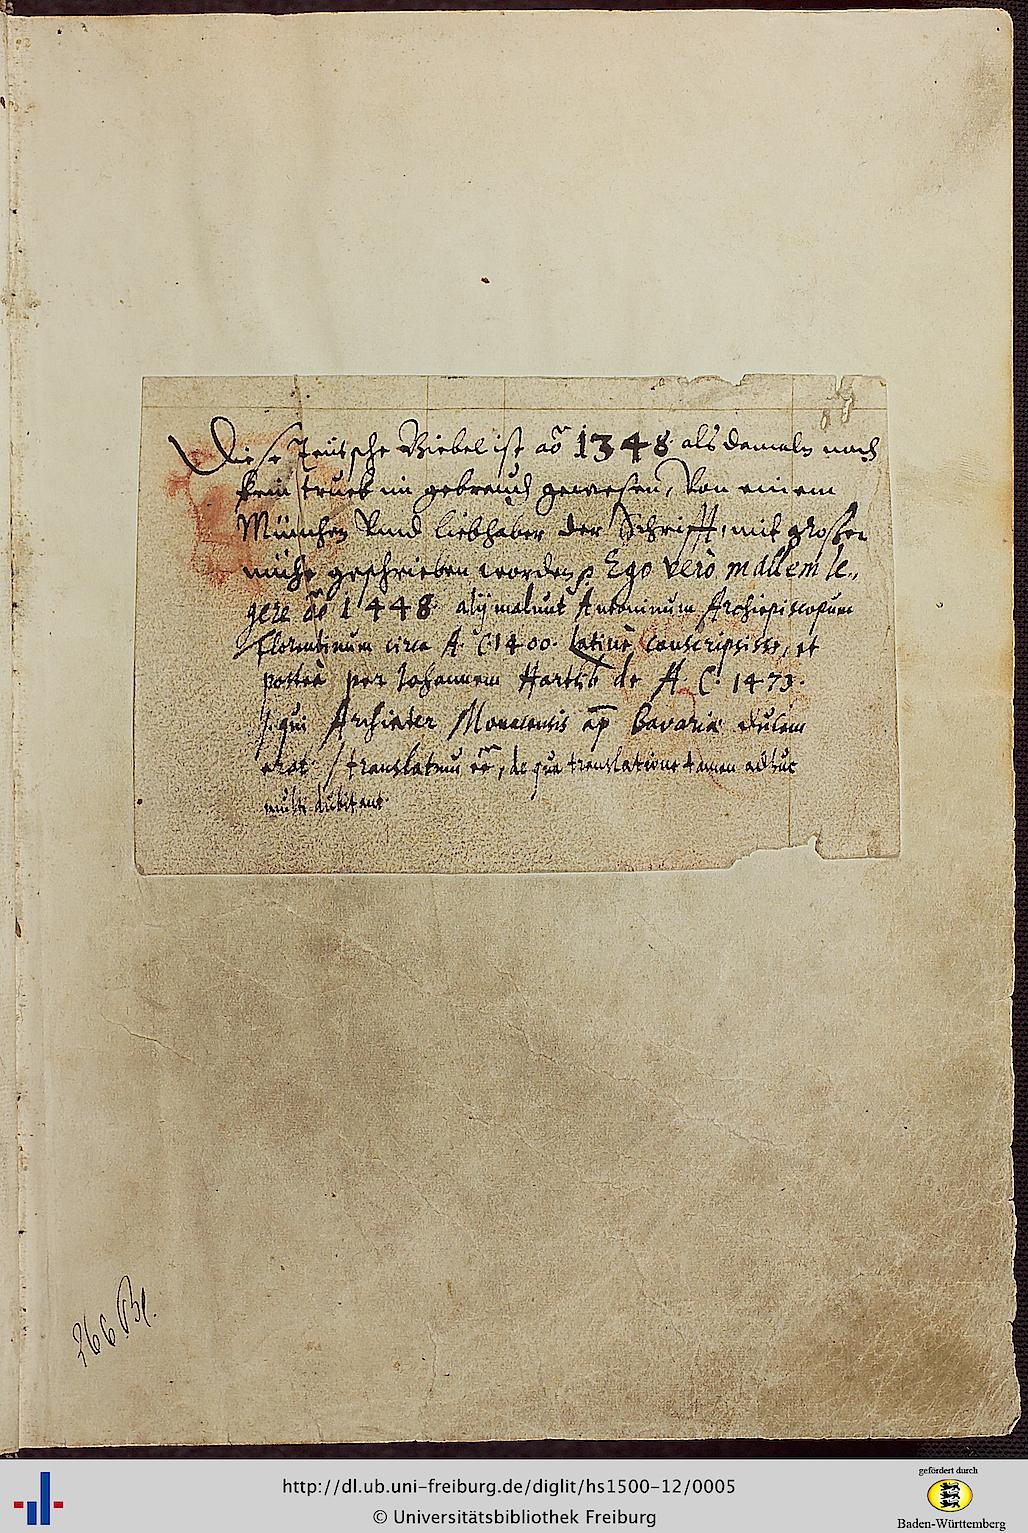 Diese Teutsche Biebel ist aō 1348 als damaln noch
kein truck im gebrauch gewesen, Von einem
München Vnnd liebhaber der Schrifft, mit grosser
mühe geschrieben worden Ego verò mallem le„
gere aō 1448. alij malunt Antoninum Archiepiscopum
Florentinum circa A. C. 1400. Latinè conscripsisse, et
posteà per Iohannem Hartlib de A. C. 1473.
/: qui Archiater Monacensis ap Bavariæ
erat :/ translatum eē, de qua translatione tamen adhuc
multi dubitant.
266 Bl.
http://dl.ub.uni-freiburg.de/diglit/hs1500-12/0005
© Universitätsbibliothek Freiburg
gefördert durch
Baden-Württemberg